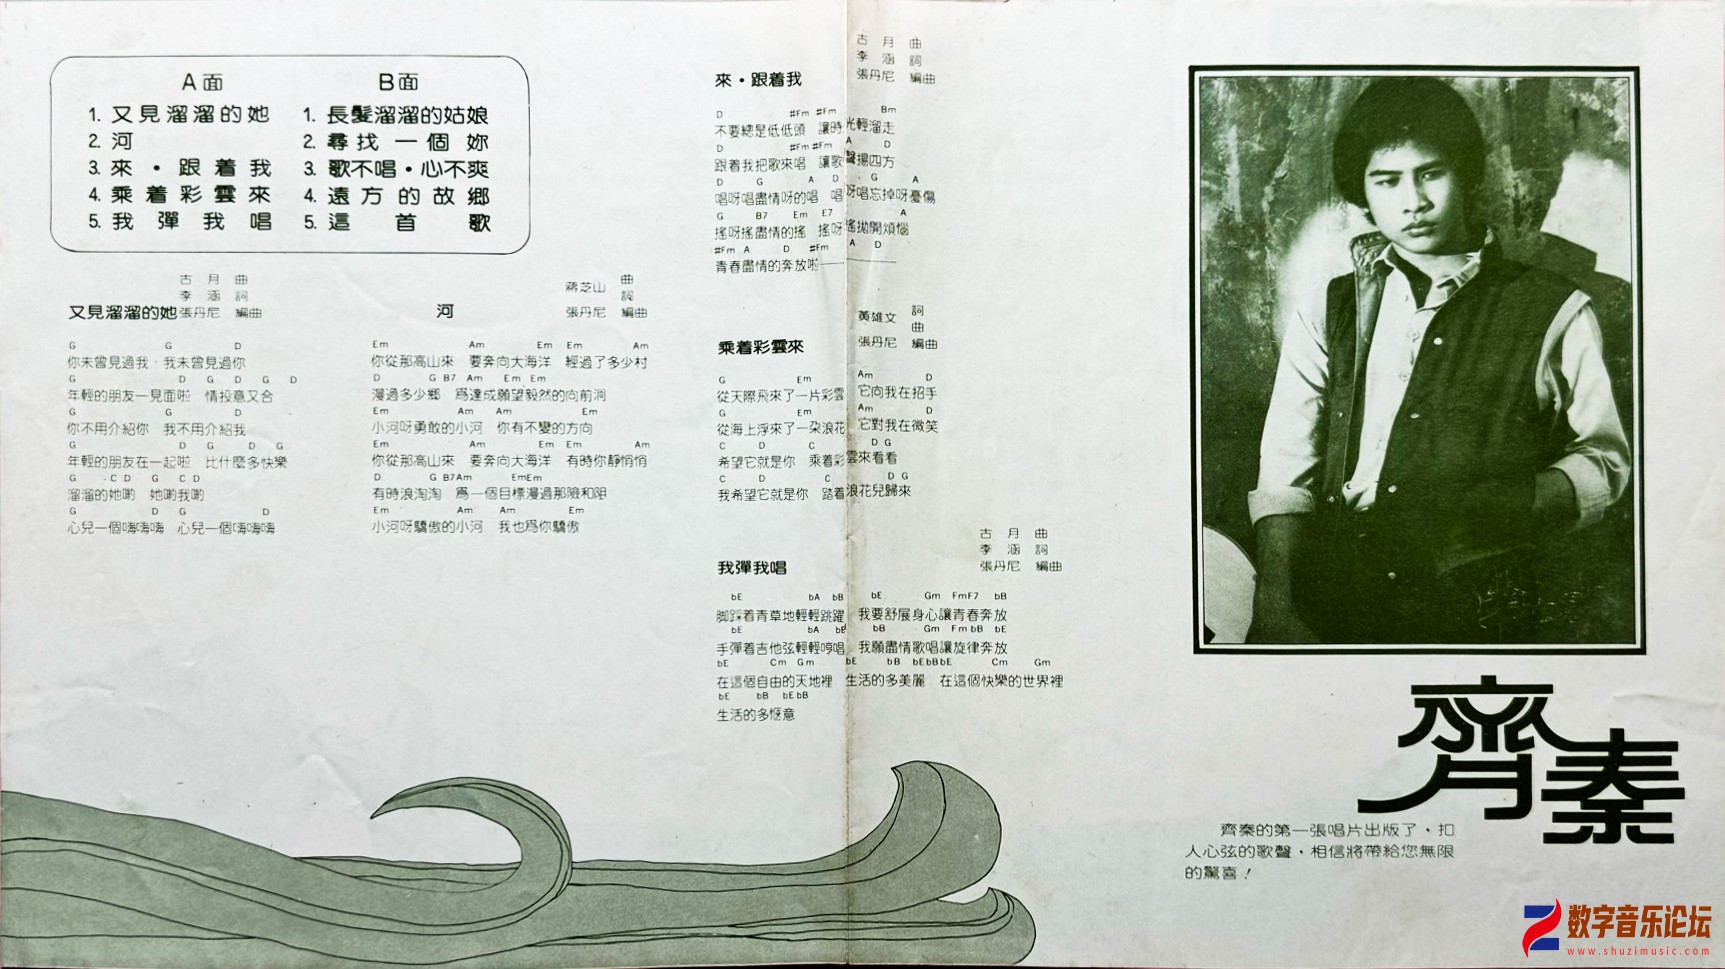 A面
1. 又見溜溜的她
2. 河
3. 來・跟着我
4. 乘着彩雲來
5. 我彈我唱
B面
1. 長髮溜溜的姑娘
2. 尋找一個妳
3. 歌不唱・心不爽
4. 遠方的故鄉
5. 這首歌
又見溜溜的她
古月 曲
李涵 詞
張丹尼 編曲
G G D
你未曾見過我・我未曾見過你
G D G D G D
年輕的朋友一見面啦 情投意又合
G G D
你不用介紹你 我不用介紹我
G D G D G
年輕的朋友在一起啦 比什麼多快樂
G C D G C D
溜溜的她喲 她喲我喲
G D G D
心兒一個嗨嗨嗨 心兒一個嗨嗨嗨
河
蔣芝山 曲
詞
張丹尼 編曲
Em Am Em Em Am
你從那高山來 要奔向大海洋 經過了多少村
D G B7 Am Em Em
漫過多少鄉 爲達成願望毅然的向前淌
Em Am Am Em
小河呀勇敢的小河 你有不變的方向
Em Am Em Em Am
你從那高山來 要奔向大海洋 有時你靜悄悄
D G B7Am EmEm
有時浪淘淘 爲一個目標漫過那險和阻
Em Am Am Em
小河呀驕傲的小河 我也爲你驕傲
來・跟着我
古月 曲
李涵 詞
張丹尼 編曲
D #Fm #Fm Bm
不要總是低低頭 讓時光輕溜走
D #Fm #Fm A D
跟着我把歌來唱 讓歌聲揚四方
D G A D G A
唱呀唱盡情呀的唱 唱呀唱忘掉呀憂傷
G B7 Em E7 A
搖呀搖盡情的搖 搖呀搖拋開煩惱
#Fm A D #Fm A D
青春盡情的奔放啦——————
乘着彩雲來
黃雄文 詞
曲
張丹尼 編曲
G Em Am D
從天際飛來了一片彩雲 它向我在招手
G Em Am D
從海上浮來了一朶浪花 它對我在微笑
C D C D G
希望它就是你 乘着彩雲來看看
C D C D G
我希望它就是你 踏着浪花兒歸來
我彈我唱
古月 曲
李涵 詞
張丹尼 編曲
bE bA bB bE Gm FmF7 bB
脚踩着青草地輕輕跳躍 我要舒展身心讓青春奔放
bE bA bB bB Gm Fm bB bE
手彈着吉他弦輕輕哼唱 我願盡情歌唱讓旋律奔放
bE Cm Gm bE bB bEbBbE Cm Gm
在這個自由的天地裡 生活的多美麗 在這個快樂的世界裡
bE bB bEbB
生活的多愜意
齊秦
齊秦的第一張唱片出版了，扣
人心弦的歌聲，相信將帶給您無限
的驚喜！
数字音乐论坛
www.shuzimusic.com